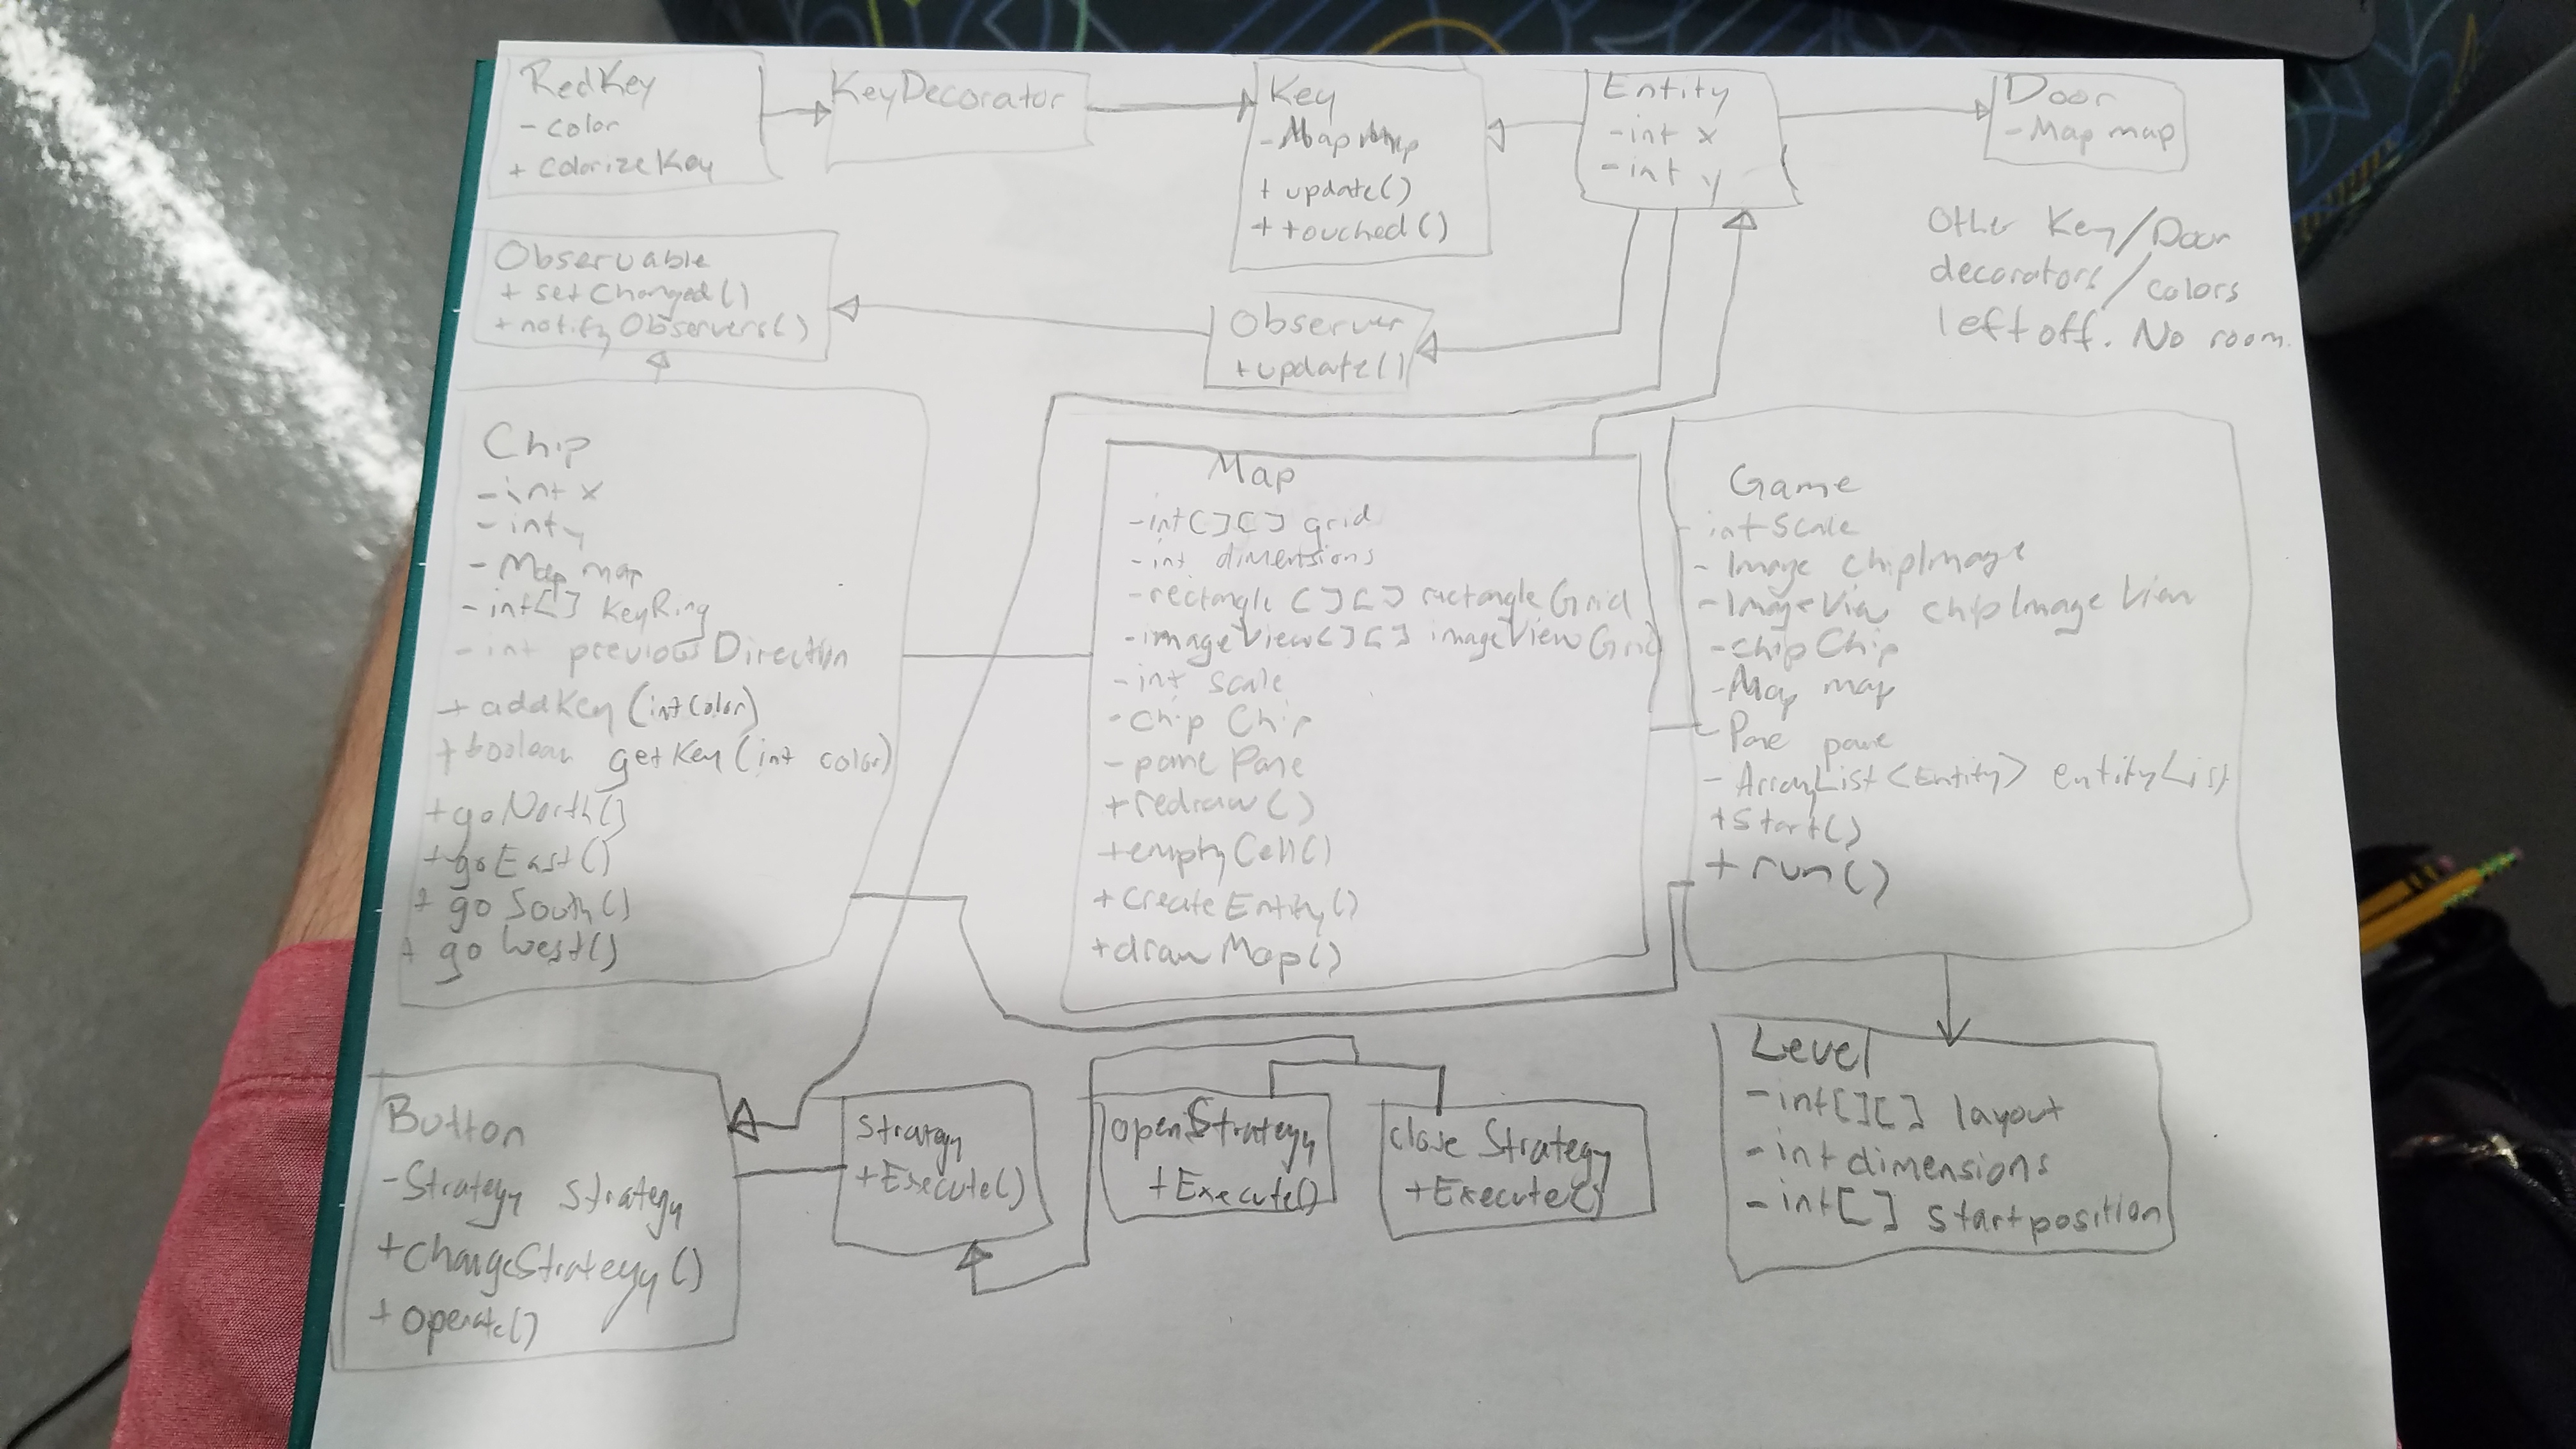 RedKey
- color
+ colorizeKey
KeyDecorator
Key
- Map map
+ update()
+ touched()
Entity
- int x
- int y
Door
- Map map
Other Key/Door
decorators/colors
left off. No room.
Observable
+ setChanged()
+ notifyObservers()
Observer
+ update()
Chip
- int x
- int y
- Map map
- int[] KeyRing
- int previousDirection
+ addKey (int color)
+ boolean getKey (int color)
+ goNorth()
+ goEast()
+ goSouth()
+ goWest()
Map
- int[][] grid
- int dimensions
- rectangle [][] rectangleGrid
- imageView[][] imageViewGrid
- int scale
- chip Chip
- pane Pane
+ redraw()
+ emptyCell()
+ createEntity()
+ drawMap()
Game
- int scale
- Image chipImage
- ImageView chipImageView
- chip Chip
- Map map
- Pane pane
- ArrayList<Entity> entityList
+ Start()
+ run()
Button
- Strategy strategy
+ changeStrategy()
+ operate()
Strategy
+ Execute()
openStrategy
+ Execute()
close Strategy
+ Execute()
Level
- int[][] layout
- int dimensions
- int[] startposition